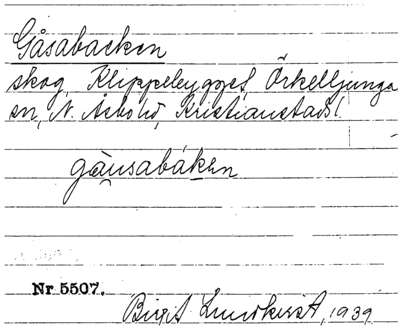 Gåsabacken
skog, Klippebygget, Örkelljunga
sn, N. Åsbohd, Kristianstads l.
gàusabáken
Nr 5507.
Birgit Lundkvist, 1939